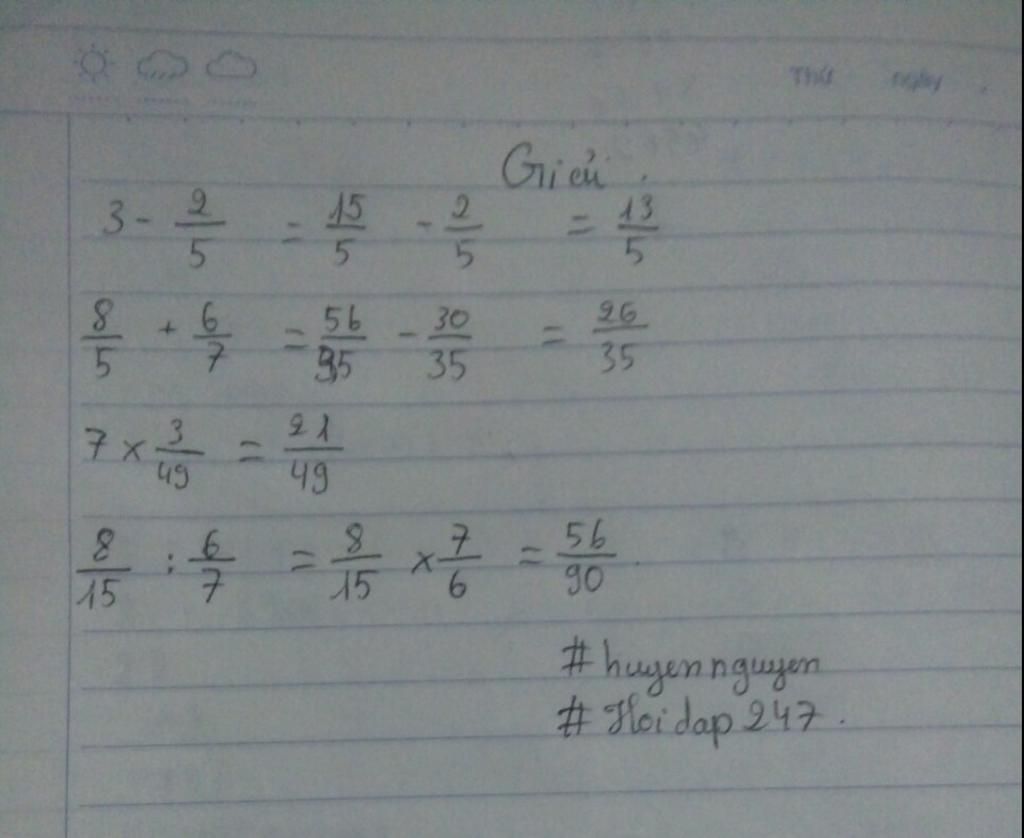 Thứ ngày
Giải.
3 - 2/5 = 15/5 - 2/5 = 13/5
8/5 + 6/7 = 56/35 - 30/35 = 26/35
7 × 3/49 = 21/49
8/15 : 6/7 = 8/15 × 7/6 = 56/90.
# huyennguyen
# Hoidap 247.